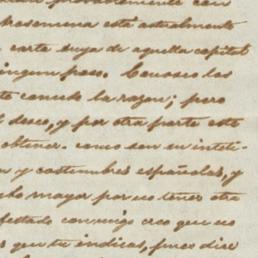 mosamina está actualmente
carta suya de aquella capital
ningun paso. Conosco las
te conculo la razon; pero
l deseo, y por otra parte este
obtener. como son su inteli-
a y costumbres españolas, y
cho mayor por no tener otra
festado conmigo creo que no
s que tu indicas, pues dice